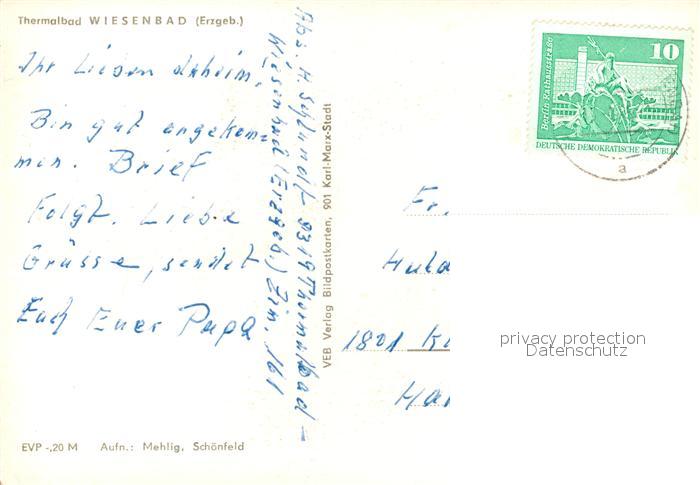 Thermalbad WIESENBAD (Erzgeb.)
Ihr Lieben daheim,
Bin gut angekom=
men. Brief
Folgt. Liebe
Grüsse, sendet
Euch Euer Papa
EVP -,20 M Aufn.: Mehlig, Schönfeld
Abs. H. 9319 Thermalbad -
Wiesenbad (Erzgeb.) Zim. 161
VEB Verlag Bildpostkarten, 901 Karl-Marx-Stadt
Berlin, Rathausstraße
10
DEUTSCHE DEMOKRATISCHE REPUBLIK
a
Fr.
Hulda
1801
privacy protection
Datenschutz